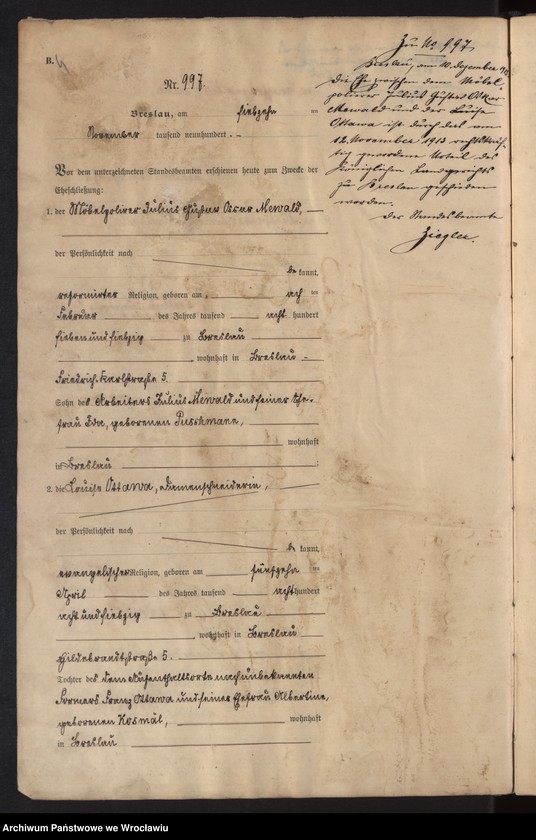 B.
Nr. 997.
Breslau, am siebzehn ten
November tausend neunhundert. –
Vor dem unterzeichneten Standesbeamten erschienen heute zum Zwecke der
Eheschließung:
1. der Möbelpolirer Julius Gustav Oscar Mewald,
der Persönlichkeit nach
be kannt,
reformirter Religion, geboren am acht ten
Februar des Jahres tausend acht hundert
sieben und siebzig zu Breslau
, wohnhaft in Breslau
Friedrich-Karlstraße 5.
Sohn des Arbeiters Julius Mewald und seiner Ehe-
frau Ida, geborenen Puschmann,
wohnhaft
in Breslau
2. die Louise Ottawa, Damenschneiderin,
der Persönlichkeit nach
be kannt,
evangelischer Religion, geboren am fünfzehn ten
April des Jahres tausend acht hundert
acht und siebzig zu Breslau
, wohnhaft in Breslau
Hildebrandtstraße 5.
Tochter des dem Aufenthaltsorte nach unbekannten
Formers Franz Ottawa und seiner Ehefrau Albertine,
geborenen Kosmal, wohnhaft
in Breslau
Zu No 997
Breslau, am 10. Dezember
Die Ehe zwischen dem Möbel-
polirer Julius Gustav Oskar
Mewald und der Luise
Ottawa ist durch das am
12. November 1913 rechtskräf-
tig gewordene Urteil des
Königlichen Landgerichts
zu Breslau geschieden
worden.
Der Standesbeamte
Ziegler.
Archiwum Państwowe we Wrocławiu